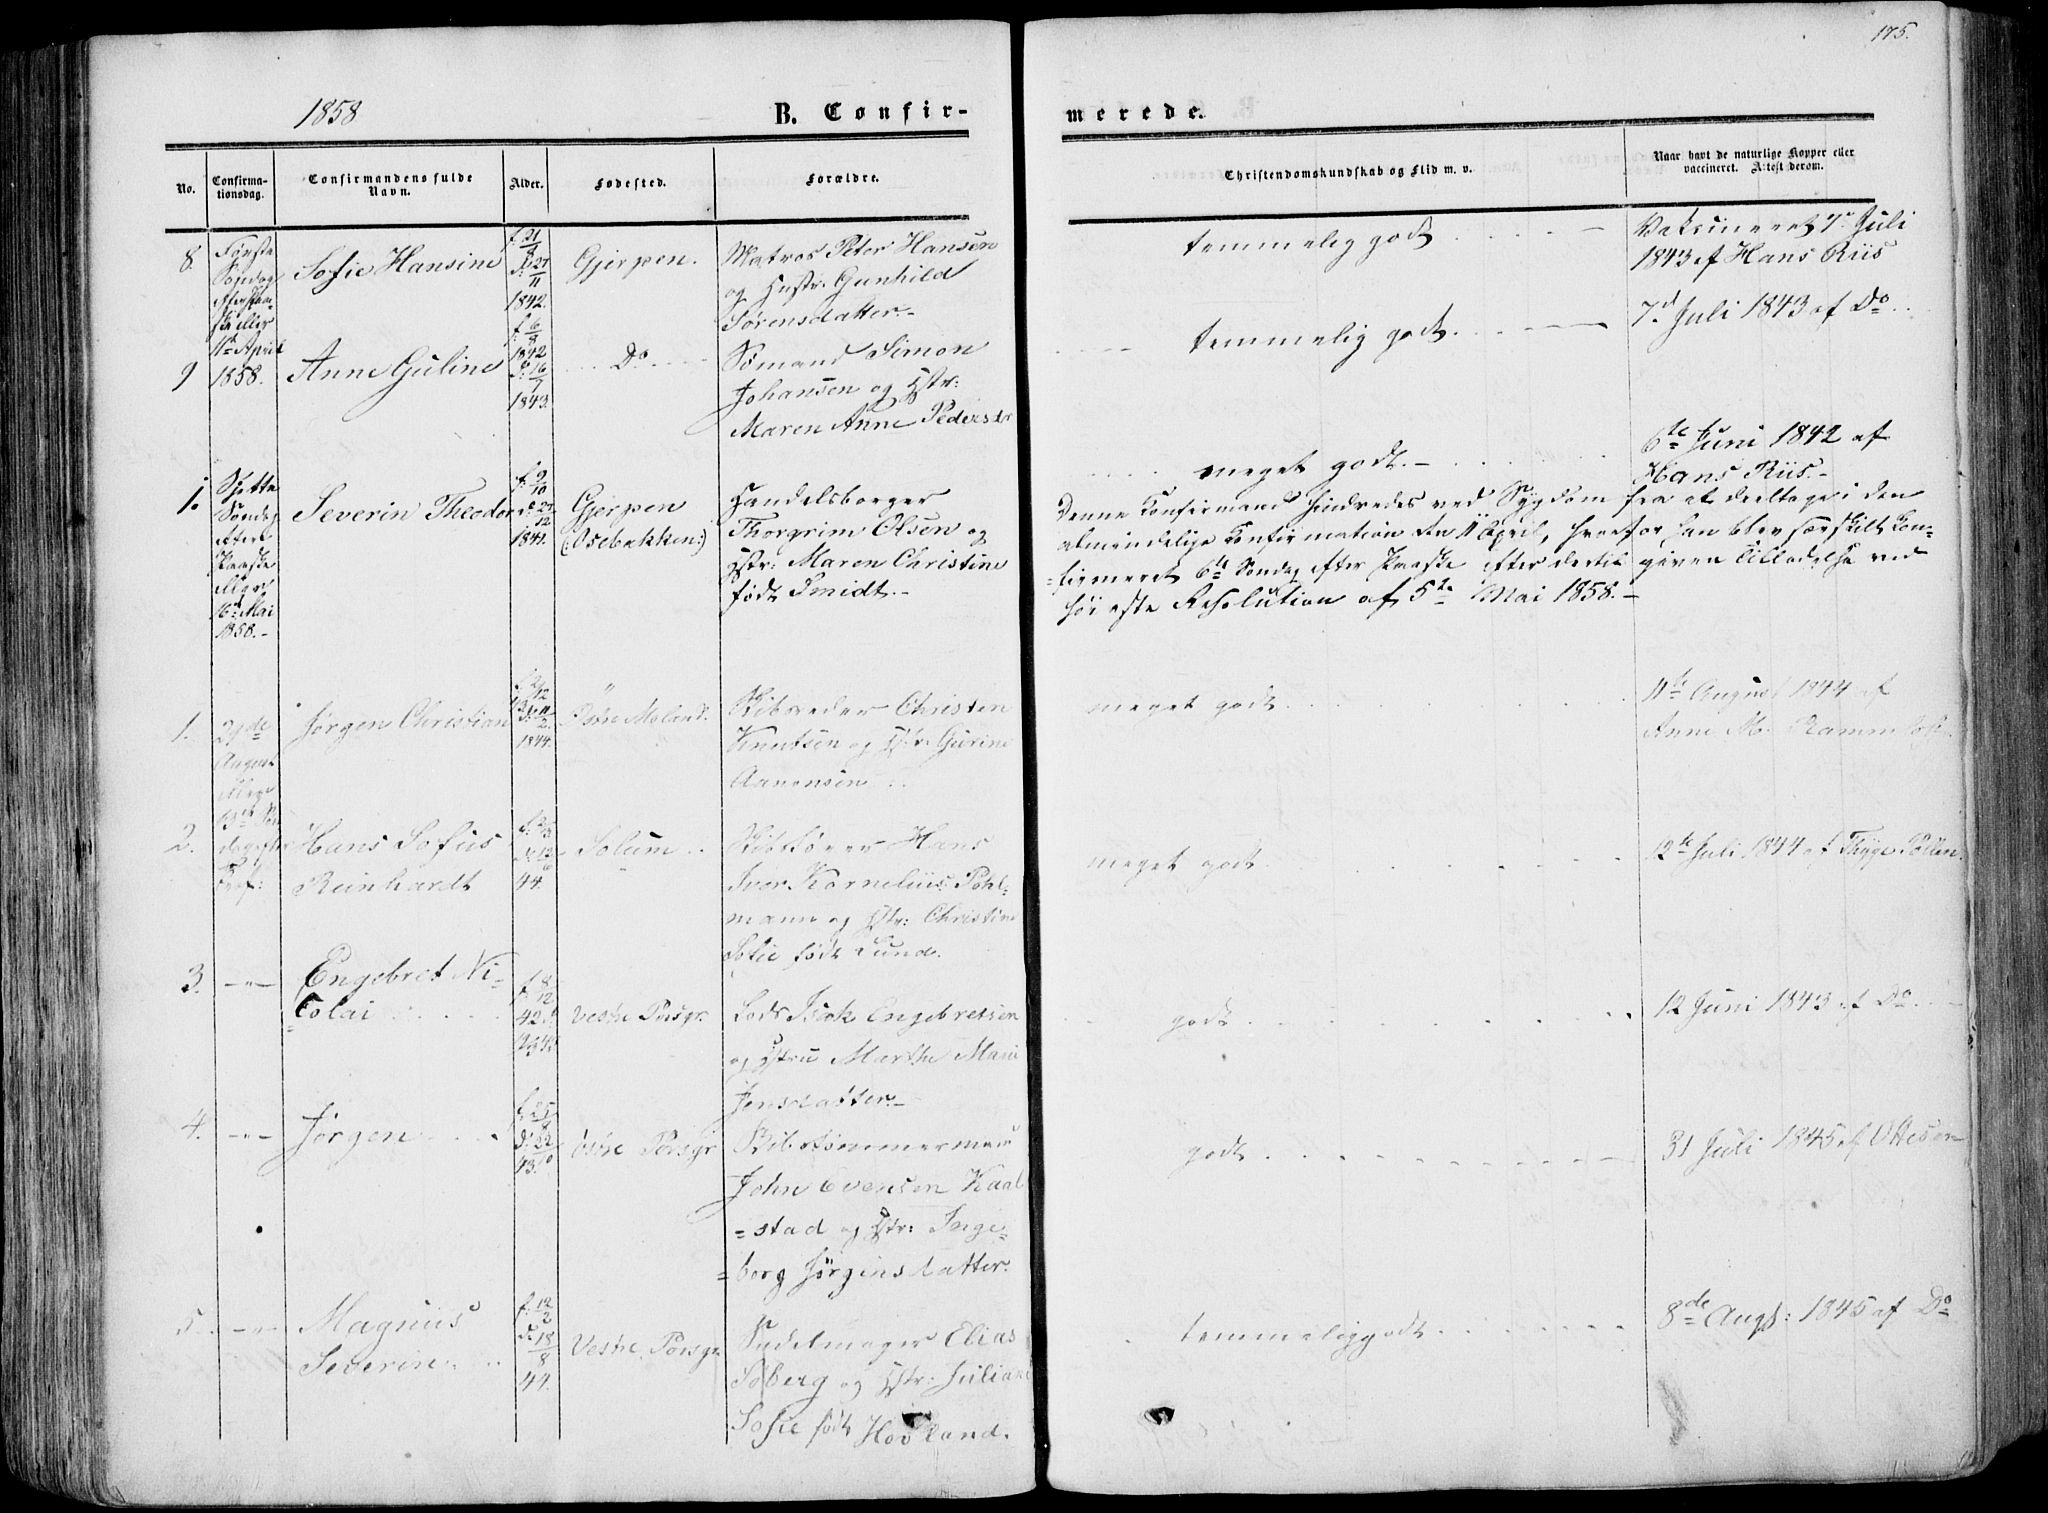 175.
1858
B. Confir-
merede.
No.
Confirma-
tionsdag.
Confirmandens fulde
Navn.
Alder.
Fødested.
Forældre.
Christendomskundskab og Flid m. v.
Naar havt de naturlige Kopper eller
vaccineret. Attest derom.
8.
Første
Søndag
11te April
1858.
Sofie Hansine
f. 21
8
d. 27
11
1842.
Gjerpen.
Matros Peter Hansen
og Hustr: Gunhild
Sørensdatter.-
temmelig godt
Vaksineret 7de Juli
1843 af Hans Riis
9
Anne Guline
f. 6
8
1842
d. 16
7
1843.
Do
Sømand Simon
Johansen og Hstr:
Maren Anne Pedersdr
temmelig godt
7d Juli 1843 af Do
1.
Sjette
Søndag
efter
Paaske
16de Mai
1858.-
Severin Theodor
f. 9
10
d. 27
12
1841.
Gjerpen
(:Osebakken:)
Handelsborger
Thorgrim Olsen og
Hstr: Maren Christine
født Smidt.-
meget godt.-
6te Juni 1842 af
Hans Riis.-
Denne Konfirmand hindredes ved Sygdom fra at deeltage i den
almindelige Konfirmation den 11 April, hvorfor han blev særskilt Kon-
=firmeret 6te Søndag efter Paaske efter dertil given Tilladelse ved
høieste Resolution af 5te Mai 1858.-
1.
29de
August
Jørgen Christian
12
11
2
1844.
Moland.
Skibsreder Christen
Knutsen og Hstr: Gurine
Aanonsen
meget godt
11te August 1844 af
Anne M. Ramm
2.
13de
Hans Sofus
Reinhardt
12
6
44.
Solum
Skibsfører Hans
Iver Kornelius Pohl-
mann og Hstr: Christine
Sofie født Lund.
meget godt
12te Juli 1844 af Thyge
3.
-"-
Engebret Ni-
=colai
f. 8
12
42.
Vestre Porsgr.
Lods Isak Engebretsen
og Hstru Marthe Marie
Jensdatter.-
godt
12 Juni 1843 af Do
4.
-"-
Jørgen
f. 25
d. 22
10
43.
Østre Porsgr
Skibstømmermand
John Evensen Kaal
=stad og Hstr: Inge-
=borg Jørgensdatter.
godt
31 Juli 1845 af
5.
-"-
Magnus
Severin
f. 12
2
d. 18
8
44.
Vestre Porsgr.
Sadelmager Elias
Soberg og Hstr: Juliane
Sofie født Hovland.
temmelig godt
8de Augst: 1845 af Do